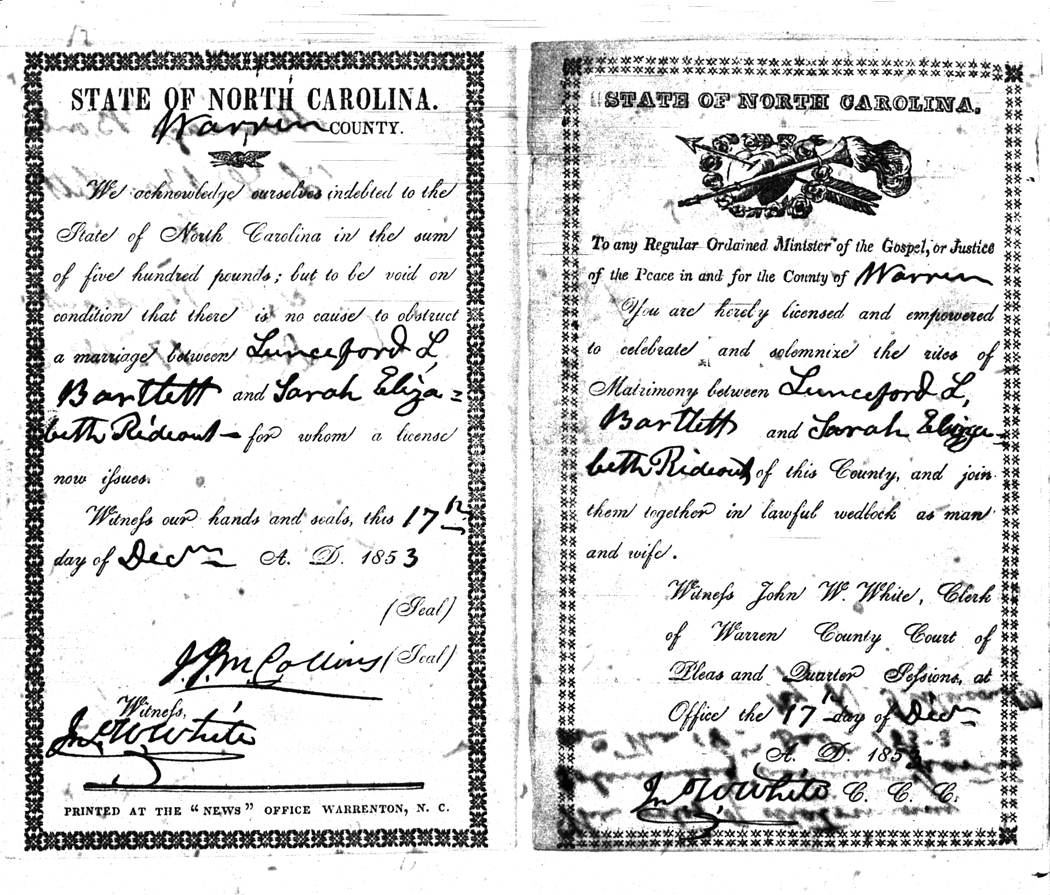 STATE OF NORTH CAROLINA.
Warren COUNTY.
We acknowledge ourselves indebted to the
State of North Carolina in the sum
of five hundred pounds; but to be void on
condition that there is no cause to obstruct
a marriage between Lunceford L,
Bartlett and Sarah Eliza=
beth Rideout – for whom a license
now issues.
Witness our hands and seals, this 17th
day of Decm A. D. 1853
(Seal)
(Seal)
Witness,
Jno W White
PRINTED AT THE "NEWS" OFFICE WARRENTON, N. C.
STATE OF NORTH CAROLINA,
To any Regular Ordained Minister of the Gospel, or Justice
of the Peace in and for the County of Warren
You are hereby licensed and empowered
to celebrate and solemnize the rites of
Matrimony between Lunceford L,
Bartlett and Sarah Eliza=
beth Rideout, of this County, and join
them together in lawful wedlock as man
and wife.
Witness John W. White, Clerk
of Warren County Court of
Pleas and Quarter Sessions, at
Office the 17th day of Decm
A. D. 1853
Jno W White C. C. C.